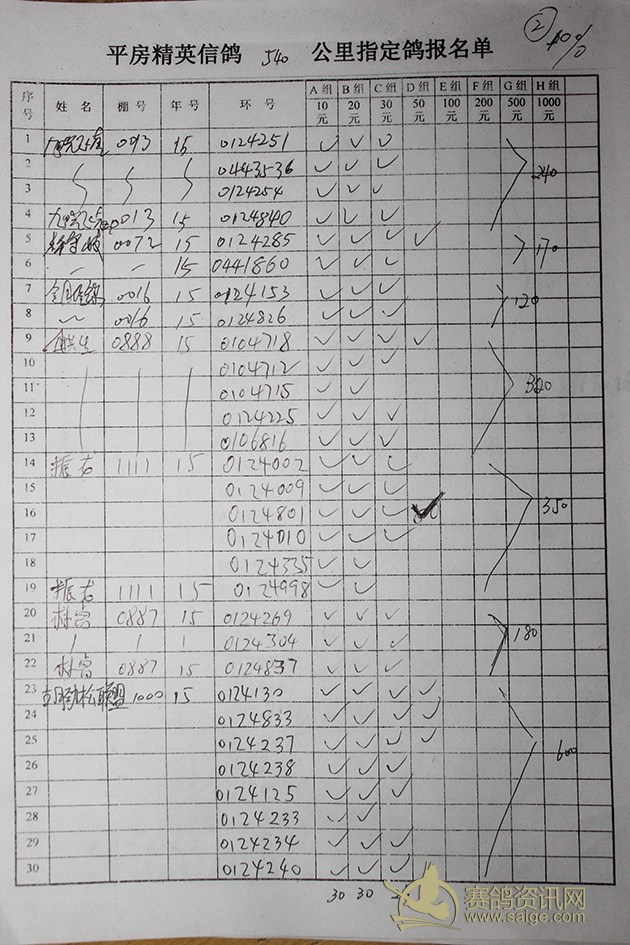 ② 10%
平房精英信鸽 540 公里指定鸽报名单
序号 姓名 棚号 年号 环号 A组10元 B组20元 C组30元 D组50元 E组100元 F组200元 G组500元 H组1000元
1 0013 15 0124251 ✓ ✓ ✓
2 0443536 ✓ ✓ ✓ 240
3 0124254 ✓ ✓ ✓
4 0013 15 0124840 ✓ ✓ ✓
5 0072 15 0124285 ✓ ✓ ✓ ✓ 170
6 15 0441860 ✓ ✓ ✓
7 0016 15 0124153 ✓ ✓ ✓ 120
8 0016 15 0124826 ✓ ✓ ✓
9 0888 15 0104718 ✓ ✓ ✓ ✓
10 0104712 ✓ ✓ ✓
11 0104715 ✓ ✓
12 0124225 ✓ ✓ ✓
13 0106816 ✓ ✓ ✓
14 振右 1111 15 0124002 ✓ ✓ ✓
15 0124009 ✓ ✓ ✓
16 0124801 ✓ ✓ ✓ 350
17 0124010 ✓ ✓ ✓
18 0124335 ✓ ✓
19 振右 1111 15 0124998 ✓ ✓
20 0887 15 0124269 ✓ ✓ ✓
21 0124304 ✓ ✓ ✓ 180
22 0887 15 0124837 ✓ ✓ ✓
23 1000 15 0124130 ✓ ✓ ✓ ✓
24 0124833 ✓ ✓ ✓ ✓
25 0124237 ✓ ✓ ✓ ✓
26 0124238 ✓ ✓ ✓ 600
27 0124125 ✓ ✓ ✓
28 0124233 ✓ ✓
29 0124234 ✓ ✓ ✓
30 0124240 ✓ ✓ ✓
30 30
赛鸽资讯网
www.saige.com